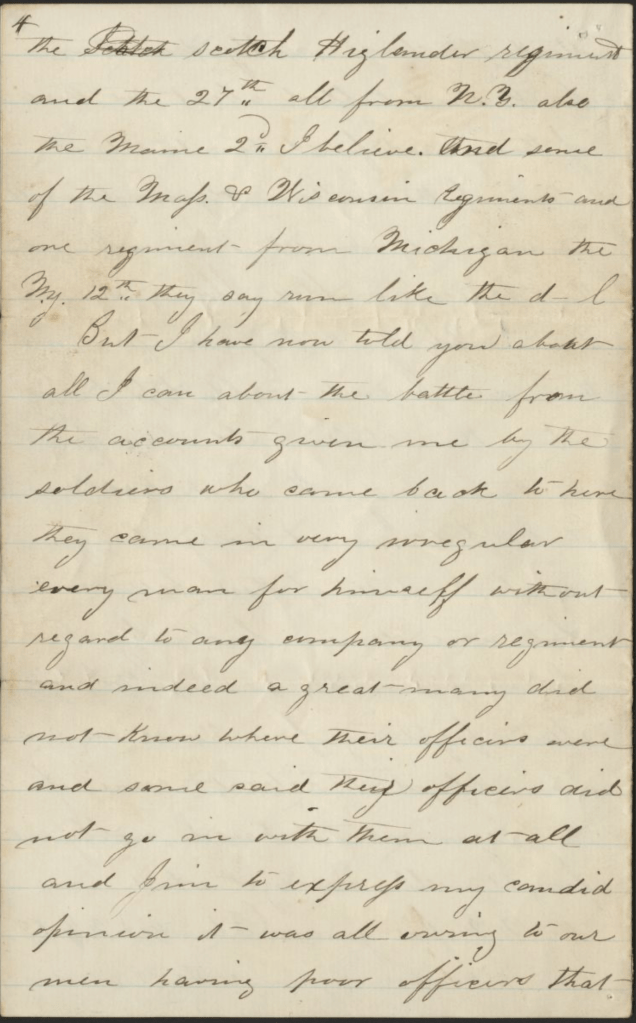 4
the Scotch scotch Higlander regiment
and the 27th all from N.Y. also
the Maine 2d I believe. And some
of the Mass. & Wisconsin Regiments and
one regiment from Michigan the
Ny. 12th they say run like the d-l
But I have now told you about
all I can about the battle from
the accounts given me by the
soldiers who came back to here
they came in very irregular
every man for himself without
regard to any company or regiment
and indeed a great many did
not know where their officers were
and some said their officers did
not go in with them at all
and Jim to express my candid
opinion it was all owing to our
men having poor officers that